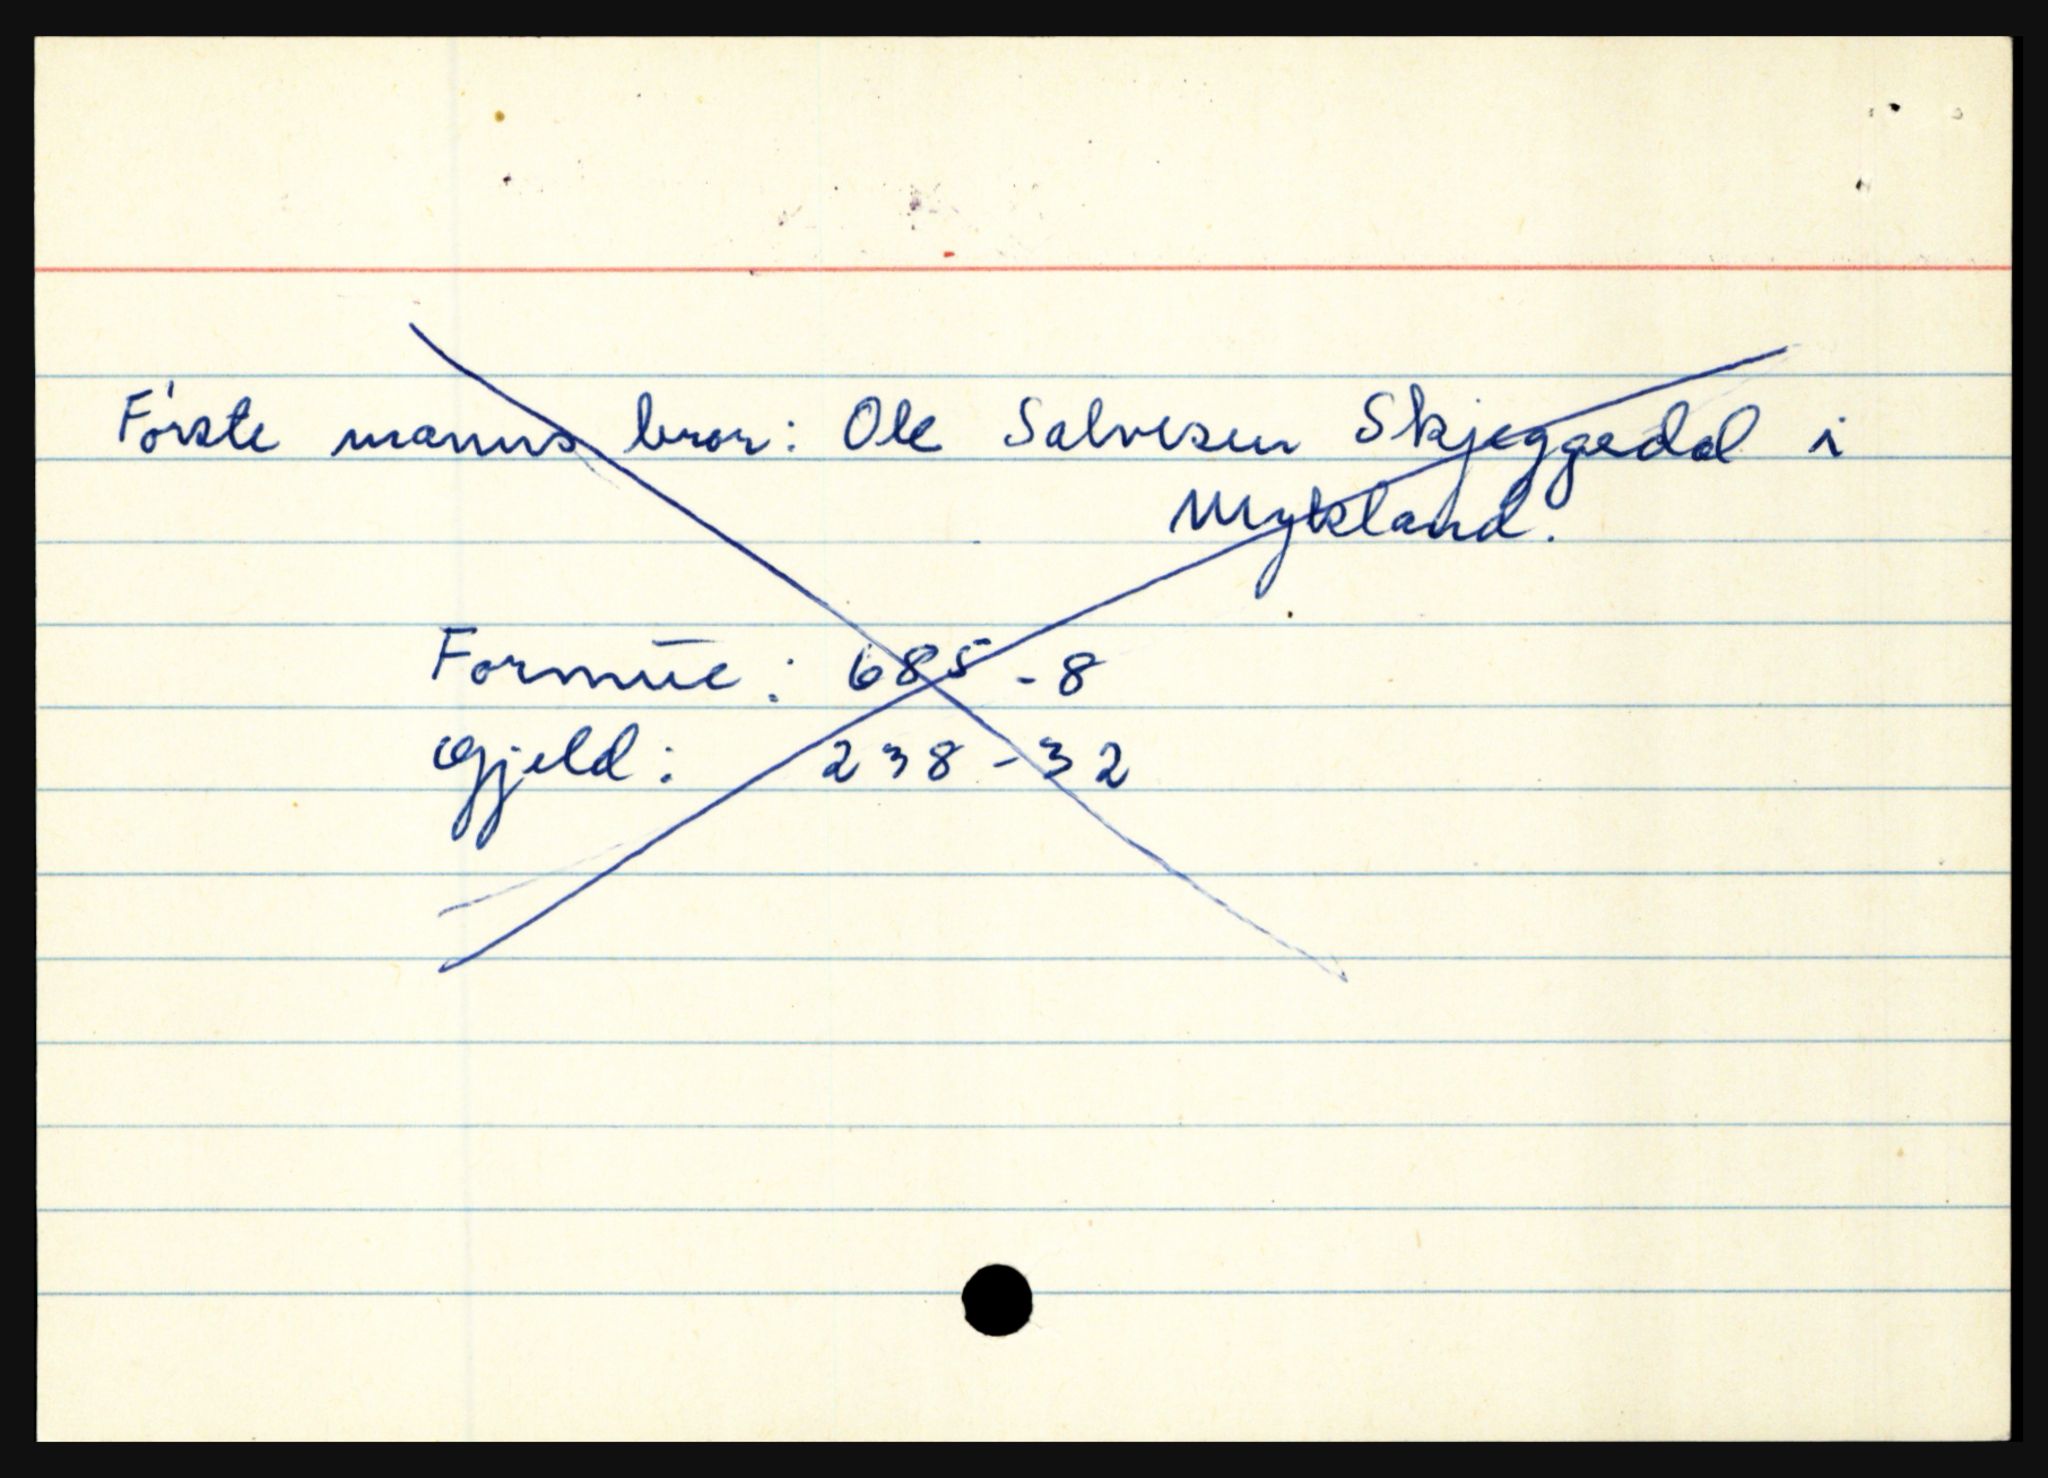 Første manns bror: Ole Salvesen Skjeggedal i
Mykland.
Formue: 685 - 8
Gjeld: 238 - 32